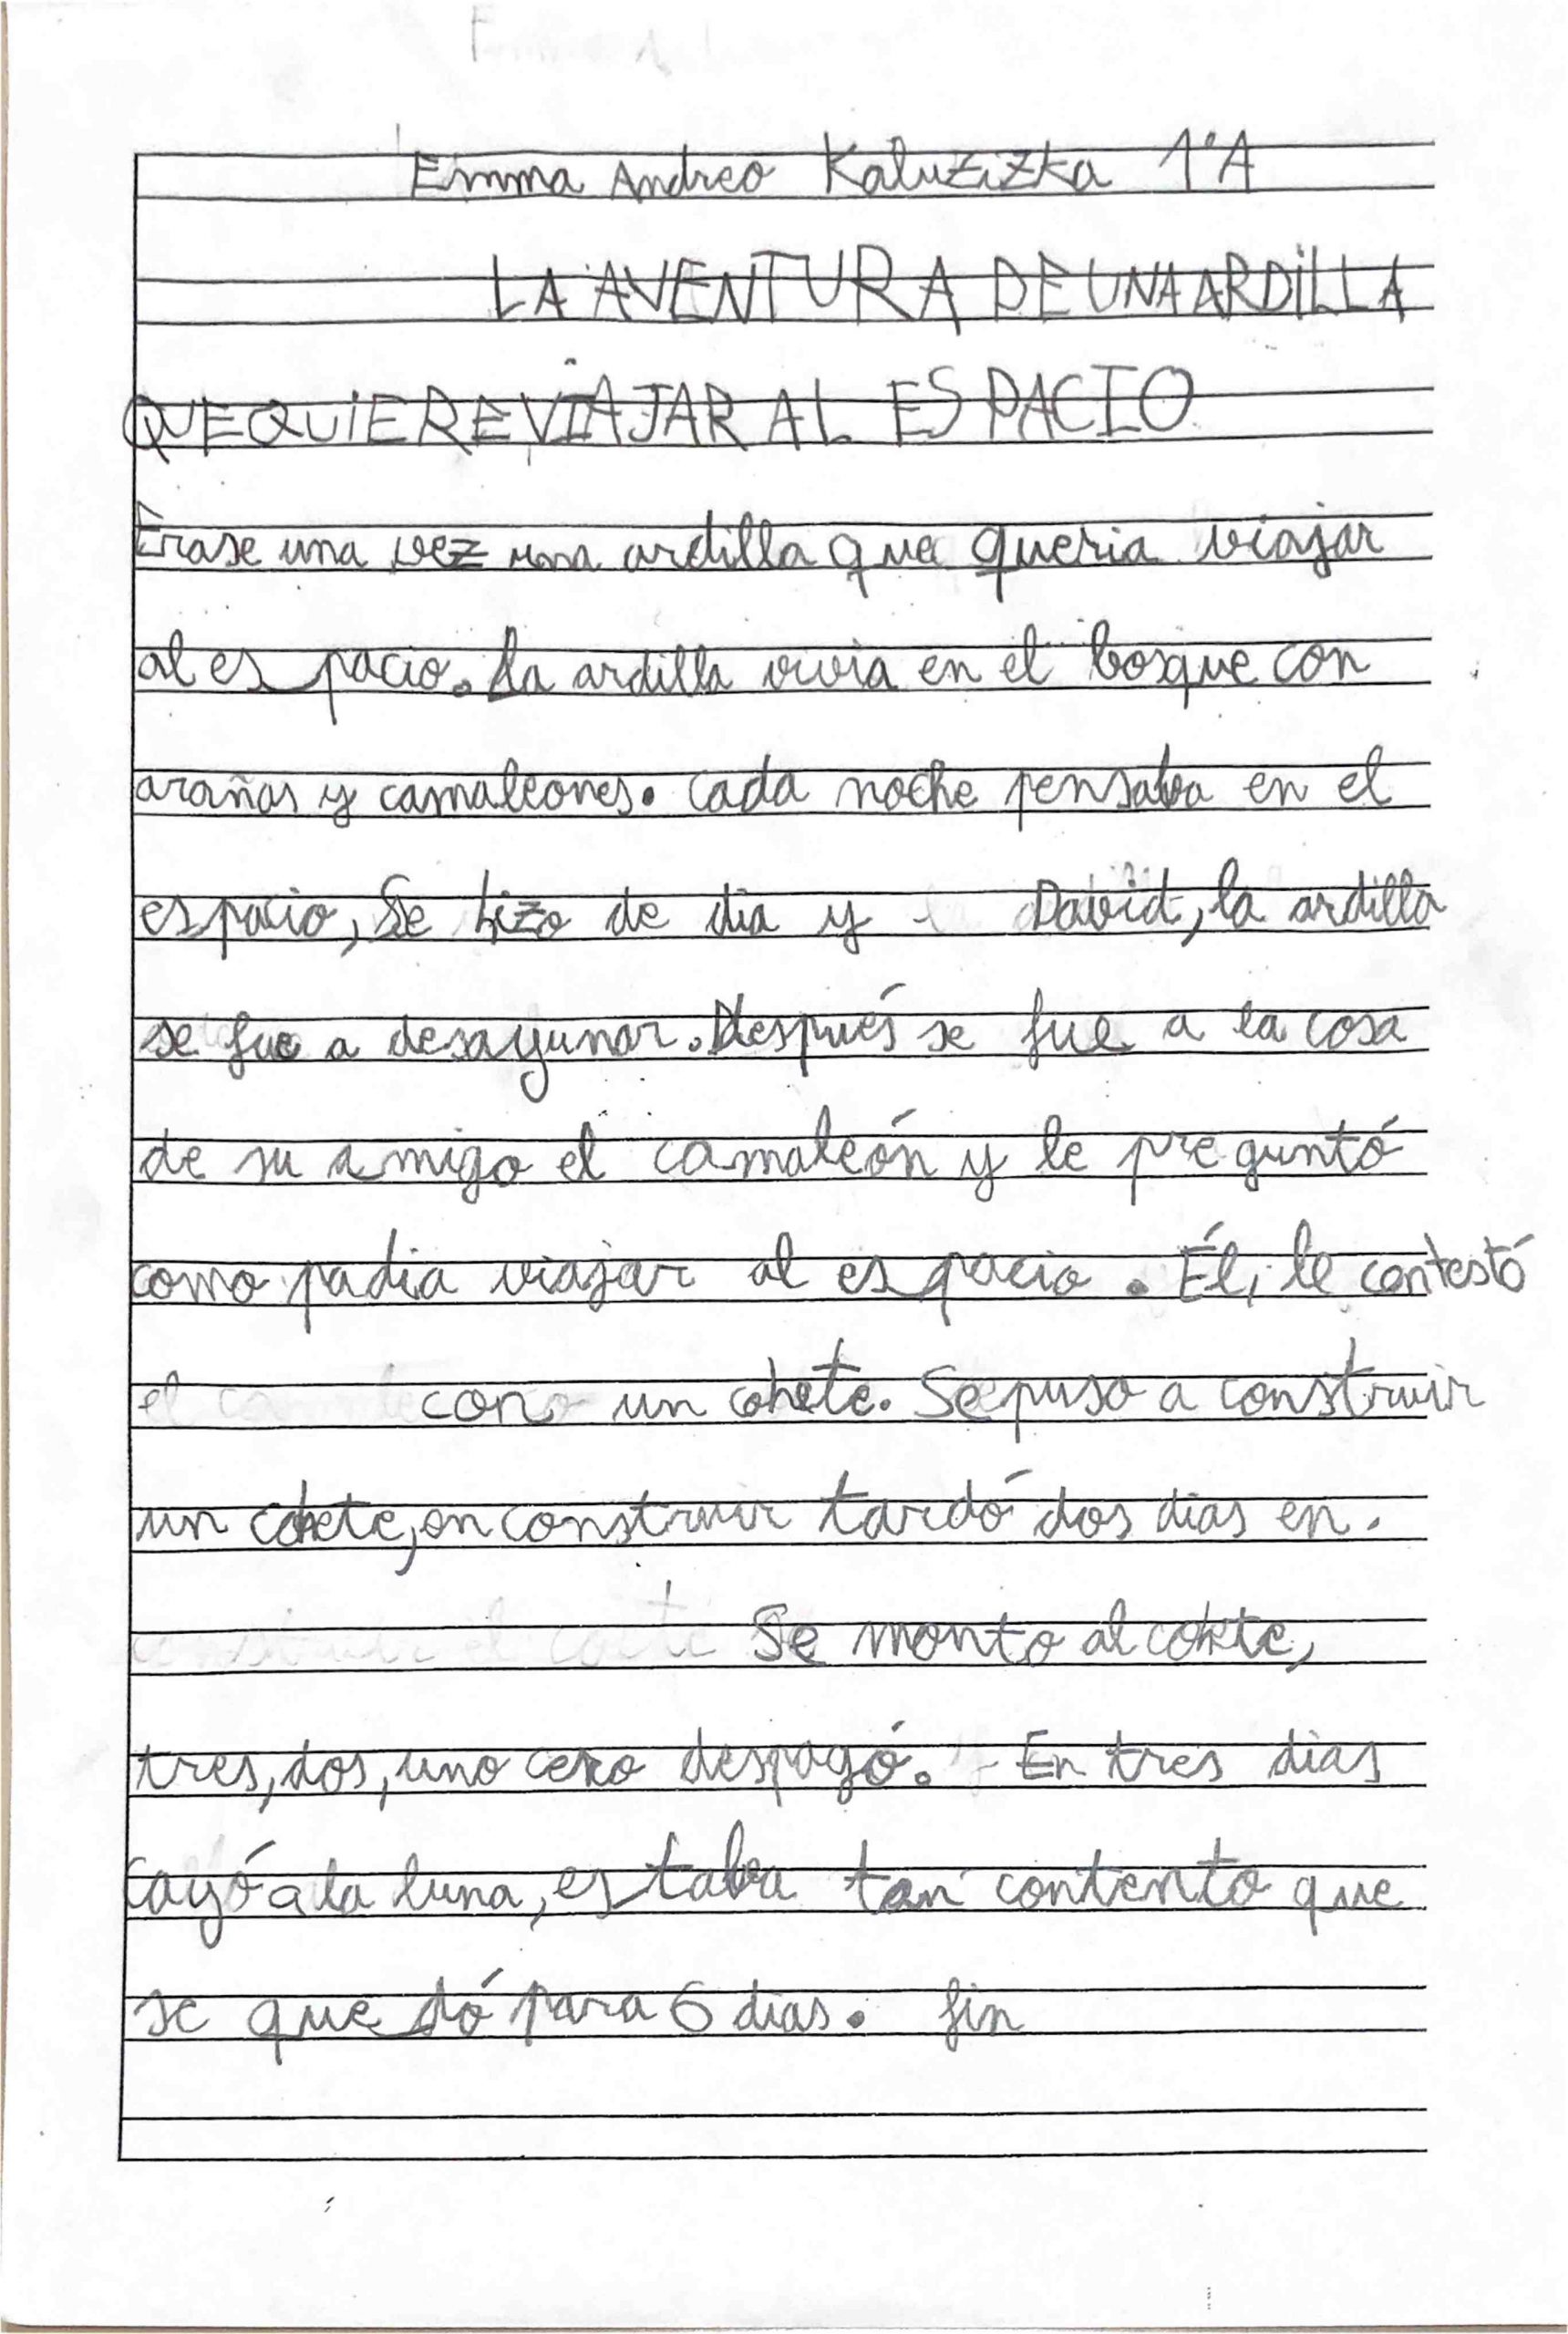 Emma Andreo Kaluzizka 1ºA
LA AVENTURA DE UNA ARDILLA
QUE QUIERE VIAJAR AL ESPACIO
Érase una vez una ardilla que queria viajar
al es pacio. La ardilla vivia en el bosque con
arañas y camaleones. cada noche pensaba en el
espacio, Se hizo de dia y David, la ardilla
se fue a desayunar. Después se fue a la casa
de su amigo el camaleón y le preguntó
como padia viajar al es pacio. Él, le contestó
con un cohete. Se puso a construir
un cohete, en construir tardó dos dias en.
Se monto al cohete,
tres, dos, uno cero despagó. En tres dias
cayó a la luna, estaba tan contento que
se que dó para 6 dias. fin